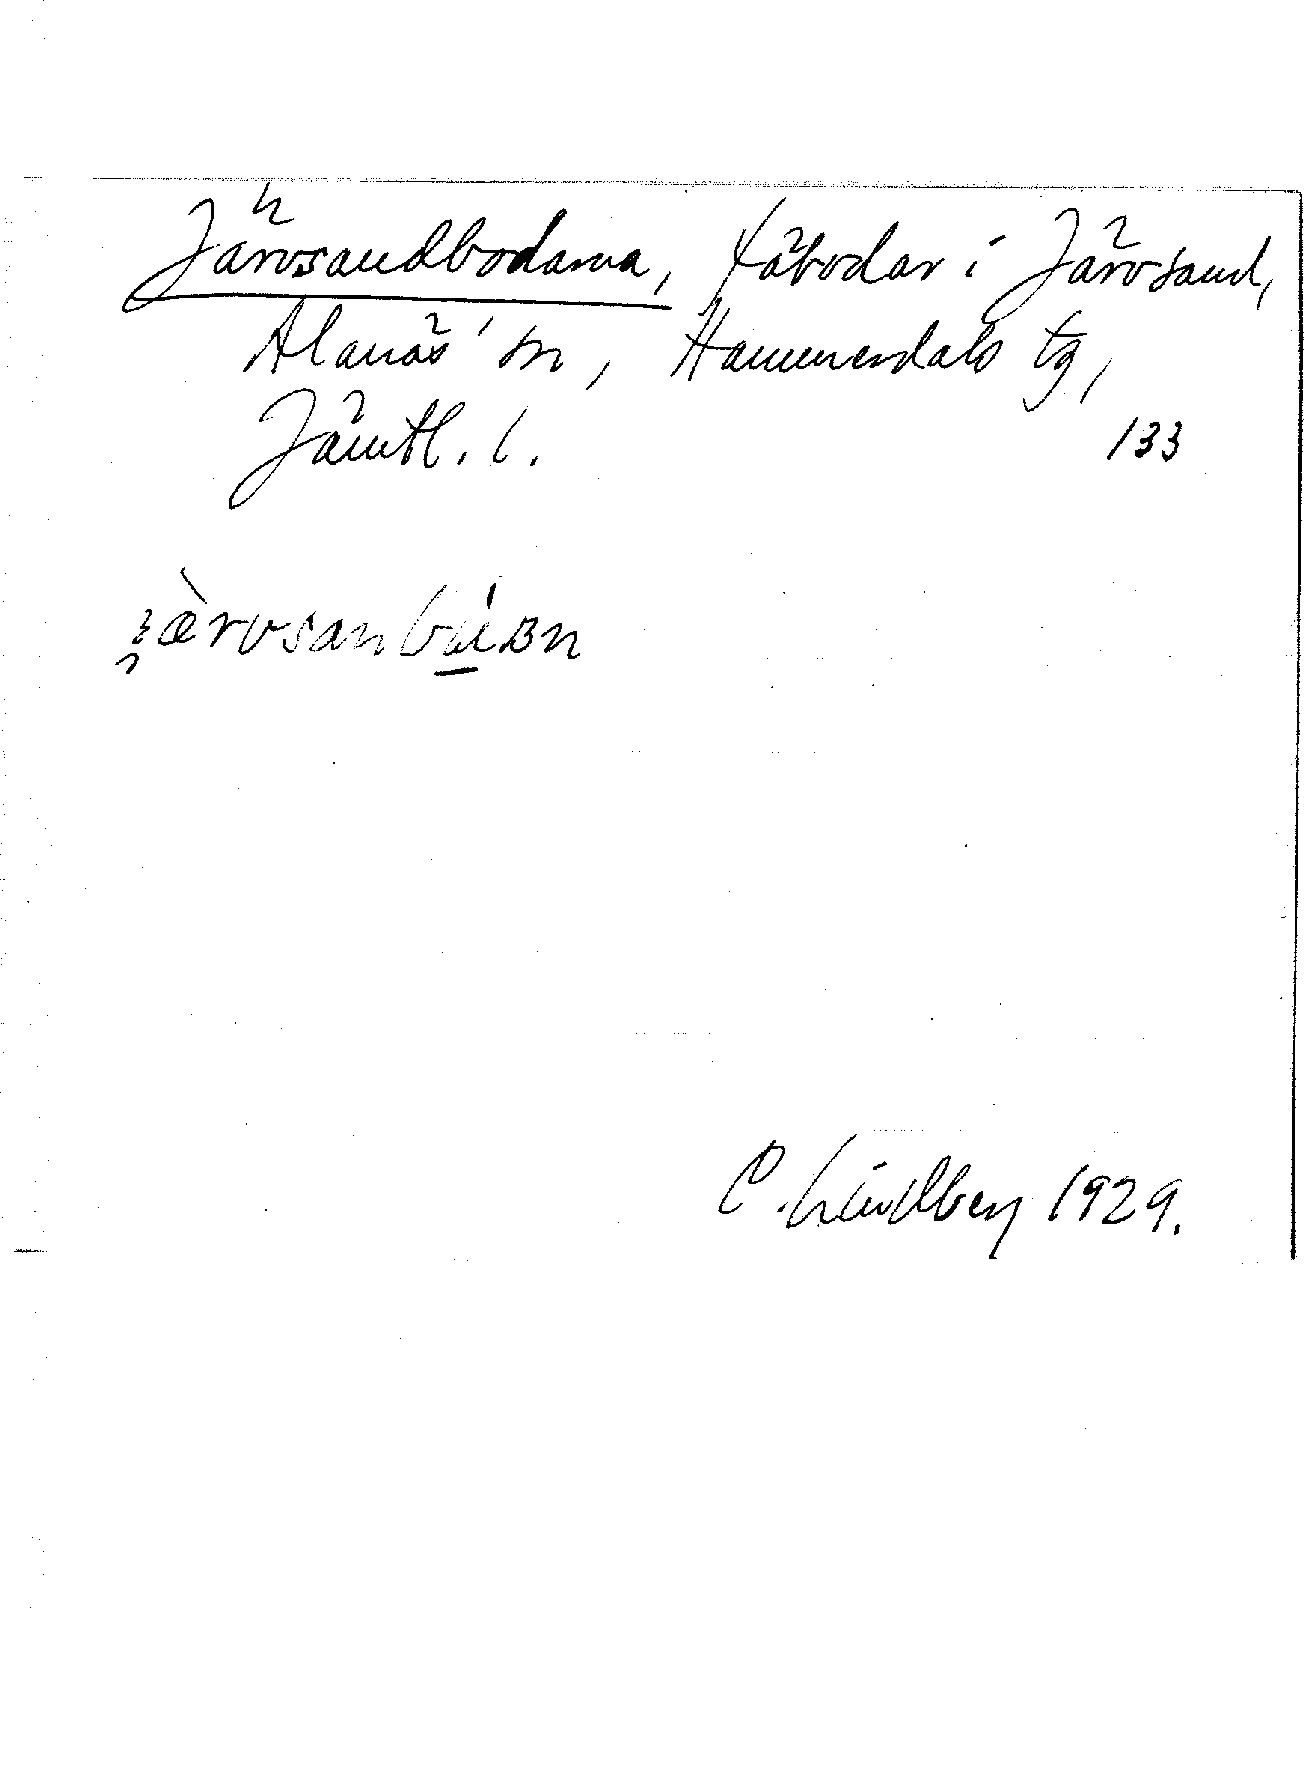 Järvsandbodarna, fäbodar i Järvsand,
Alanäs' sn, Hammerdals tg,
Jämtl. l.
133
C. Lindberg 1929.